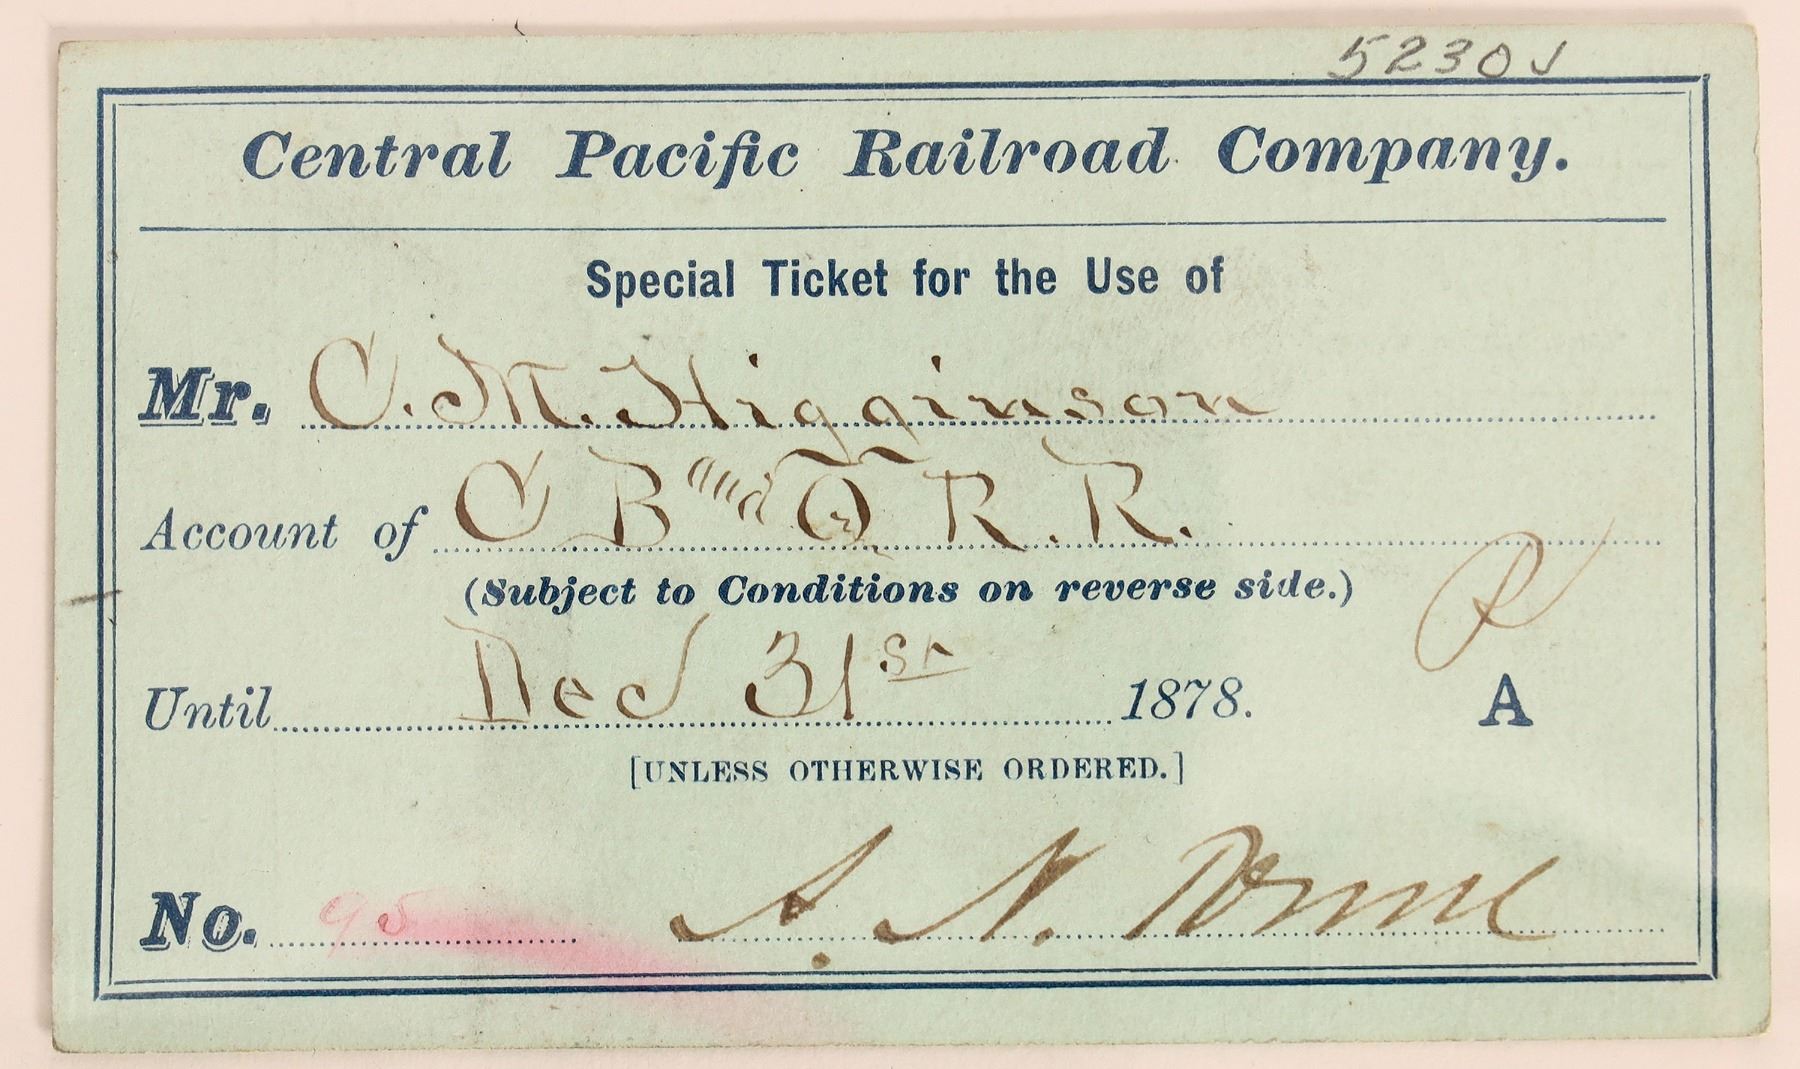 5230
Central Pacific Railroad Company.
Special Ticket for the Use of
Mr. C. M. Higginson
Account of C B and Q R.R.
(Subject to Conditions on reverse side.)
Until Dec 31st 1878. A
[UNLESS OTHERWISE ORDERED.]
No. 95 A. N. Towne